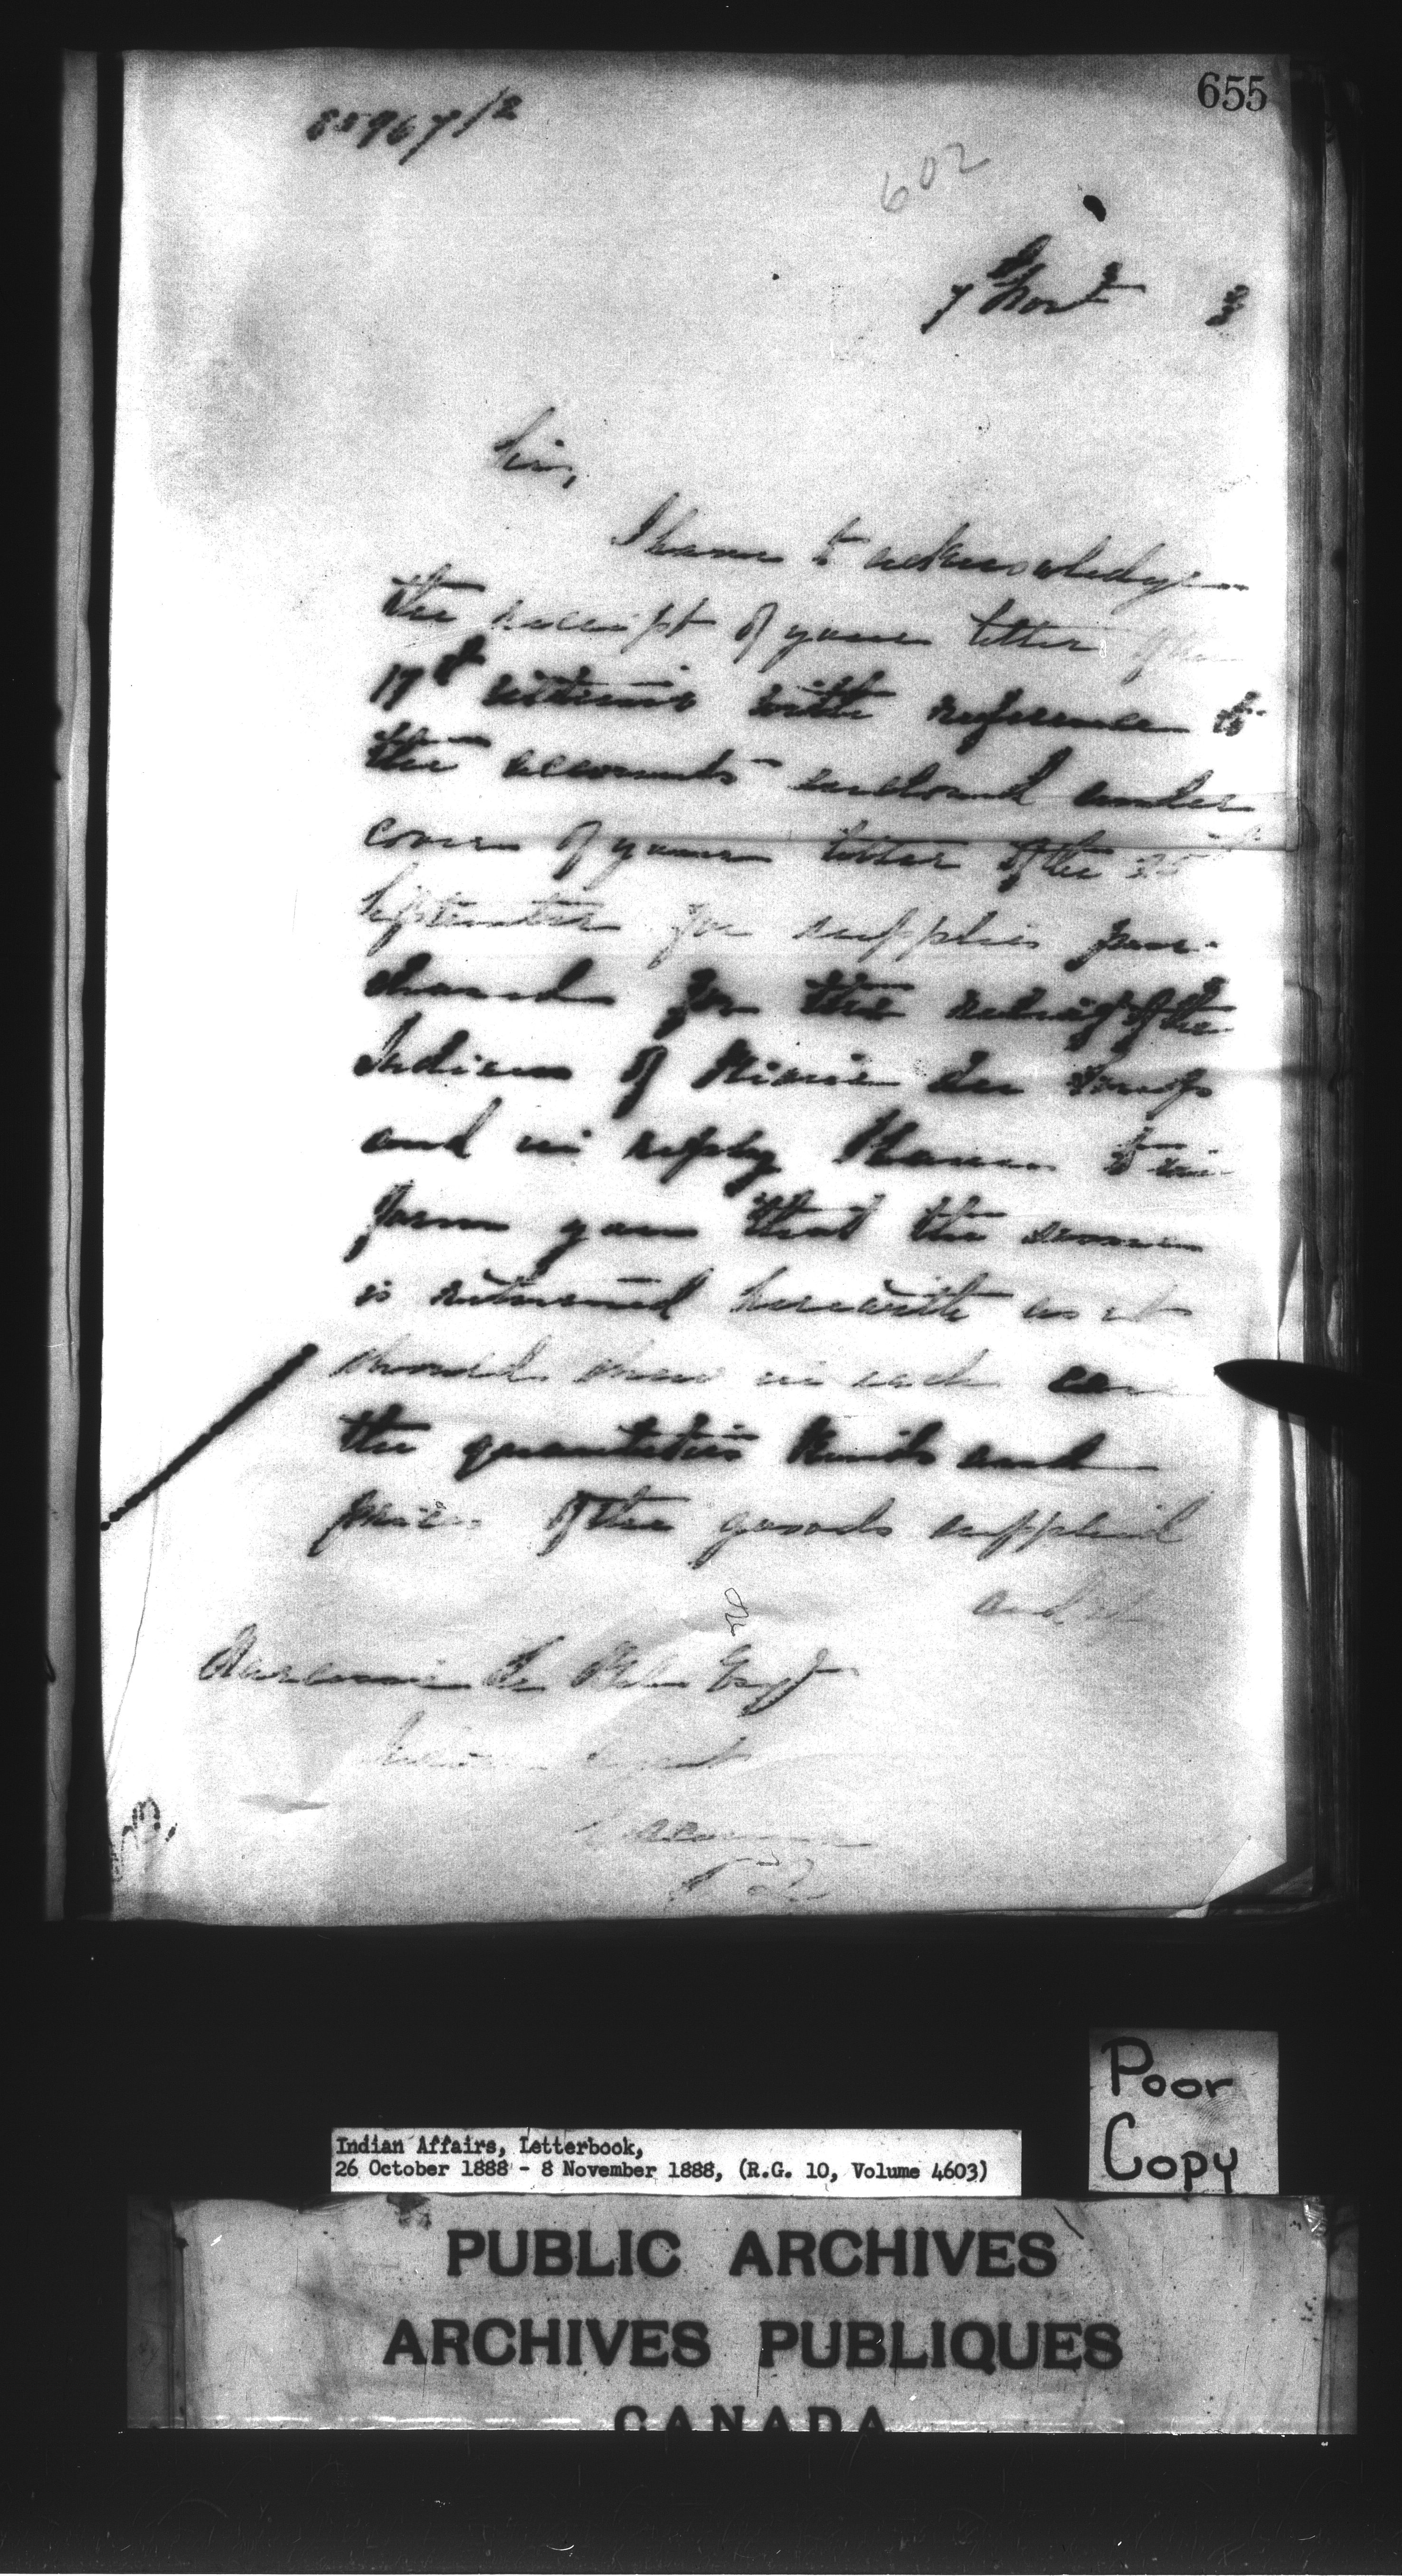 655
85967/2
602
7th Novr 8
Sir,
I have to acknowledge
the receipt of your letter of the
17th ultimo with reference to
the accounts enclosed under
cover of your letter of the 25th
September for supplies pur-
chased for the relief of the
Indians of Rivière du Loup
and in reply I have to in-
form you that the same
is returned herewith as it
should shew in each case
the quantities kinds and
prices of the goods supplied
and
Narcisse Le Bel Esqr
Indian Agent
P.Q.
Poor
Copy
Indian Affairs, Letterbook,
26 October 1888 - 8 November 1888, (R.G. 10, Volume 4603)
PUBLIC ARCHIVES
ARCHIVES PUBLIQUES
CANADA